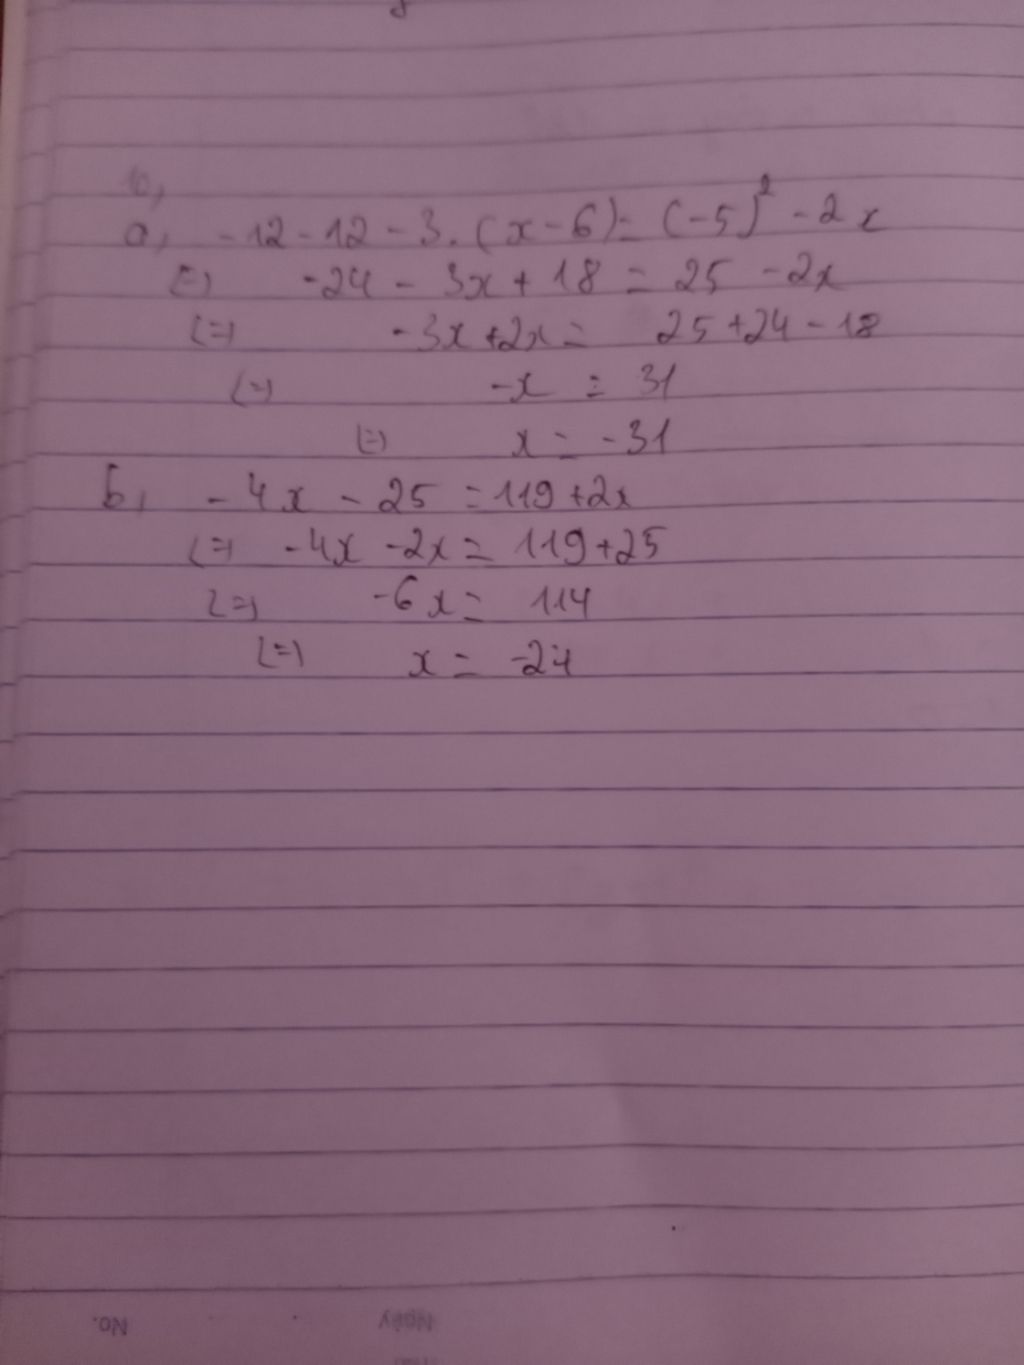 10,
a, -12-12-3.(x-6)=(-5)² -2x
(=) -24 - 3x+18 = 25 -2x
(=) -3x+2x= 25+24-18
(=) -x = 31
(=) x = -31
b, -4x - 25 =119+2x
(=) -4x -2x= 119+25
(=) -6x= 114
(=) x = -24
No. Ngày